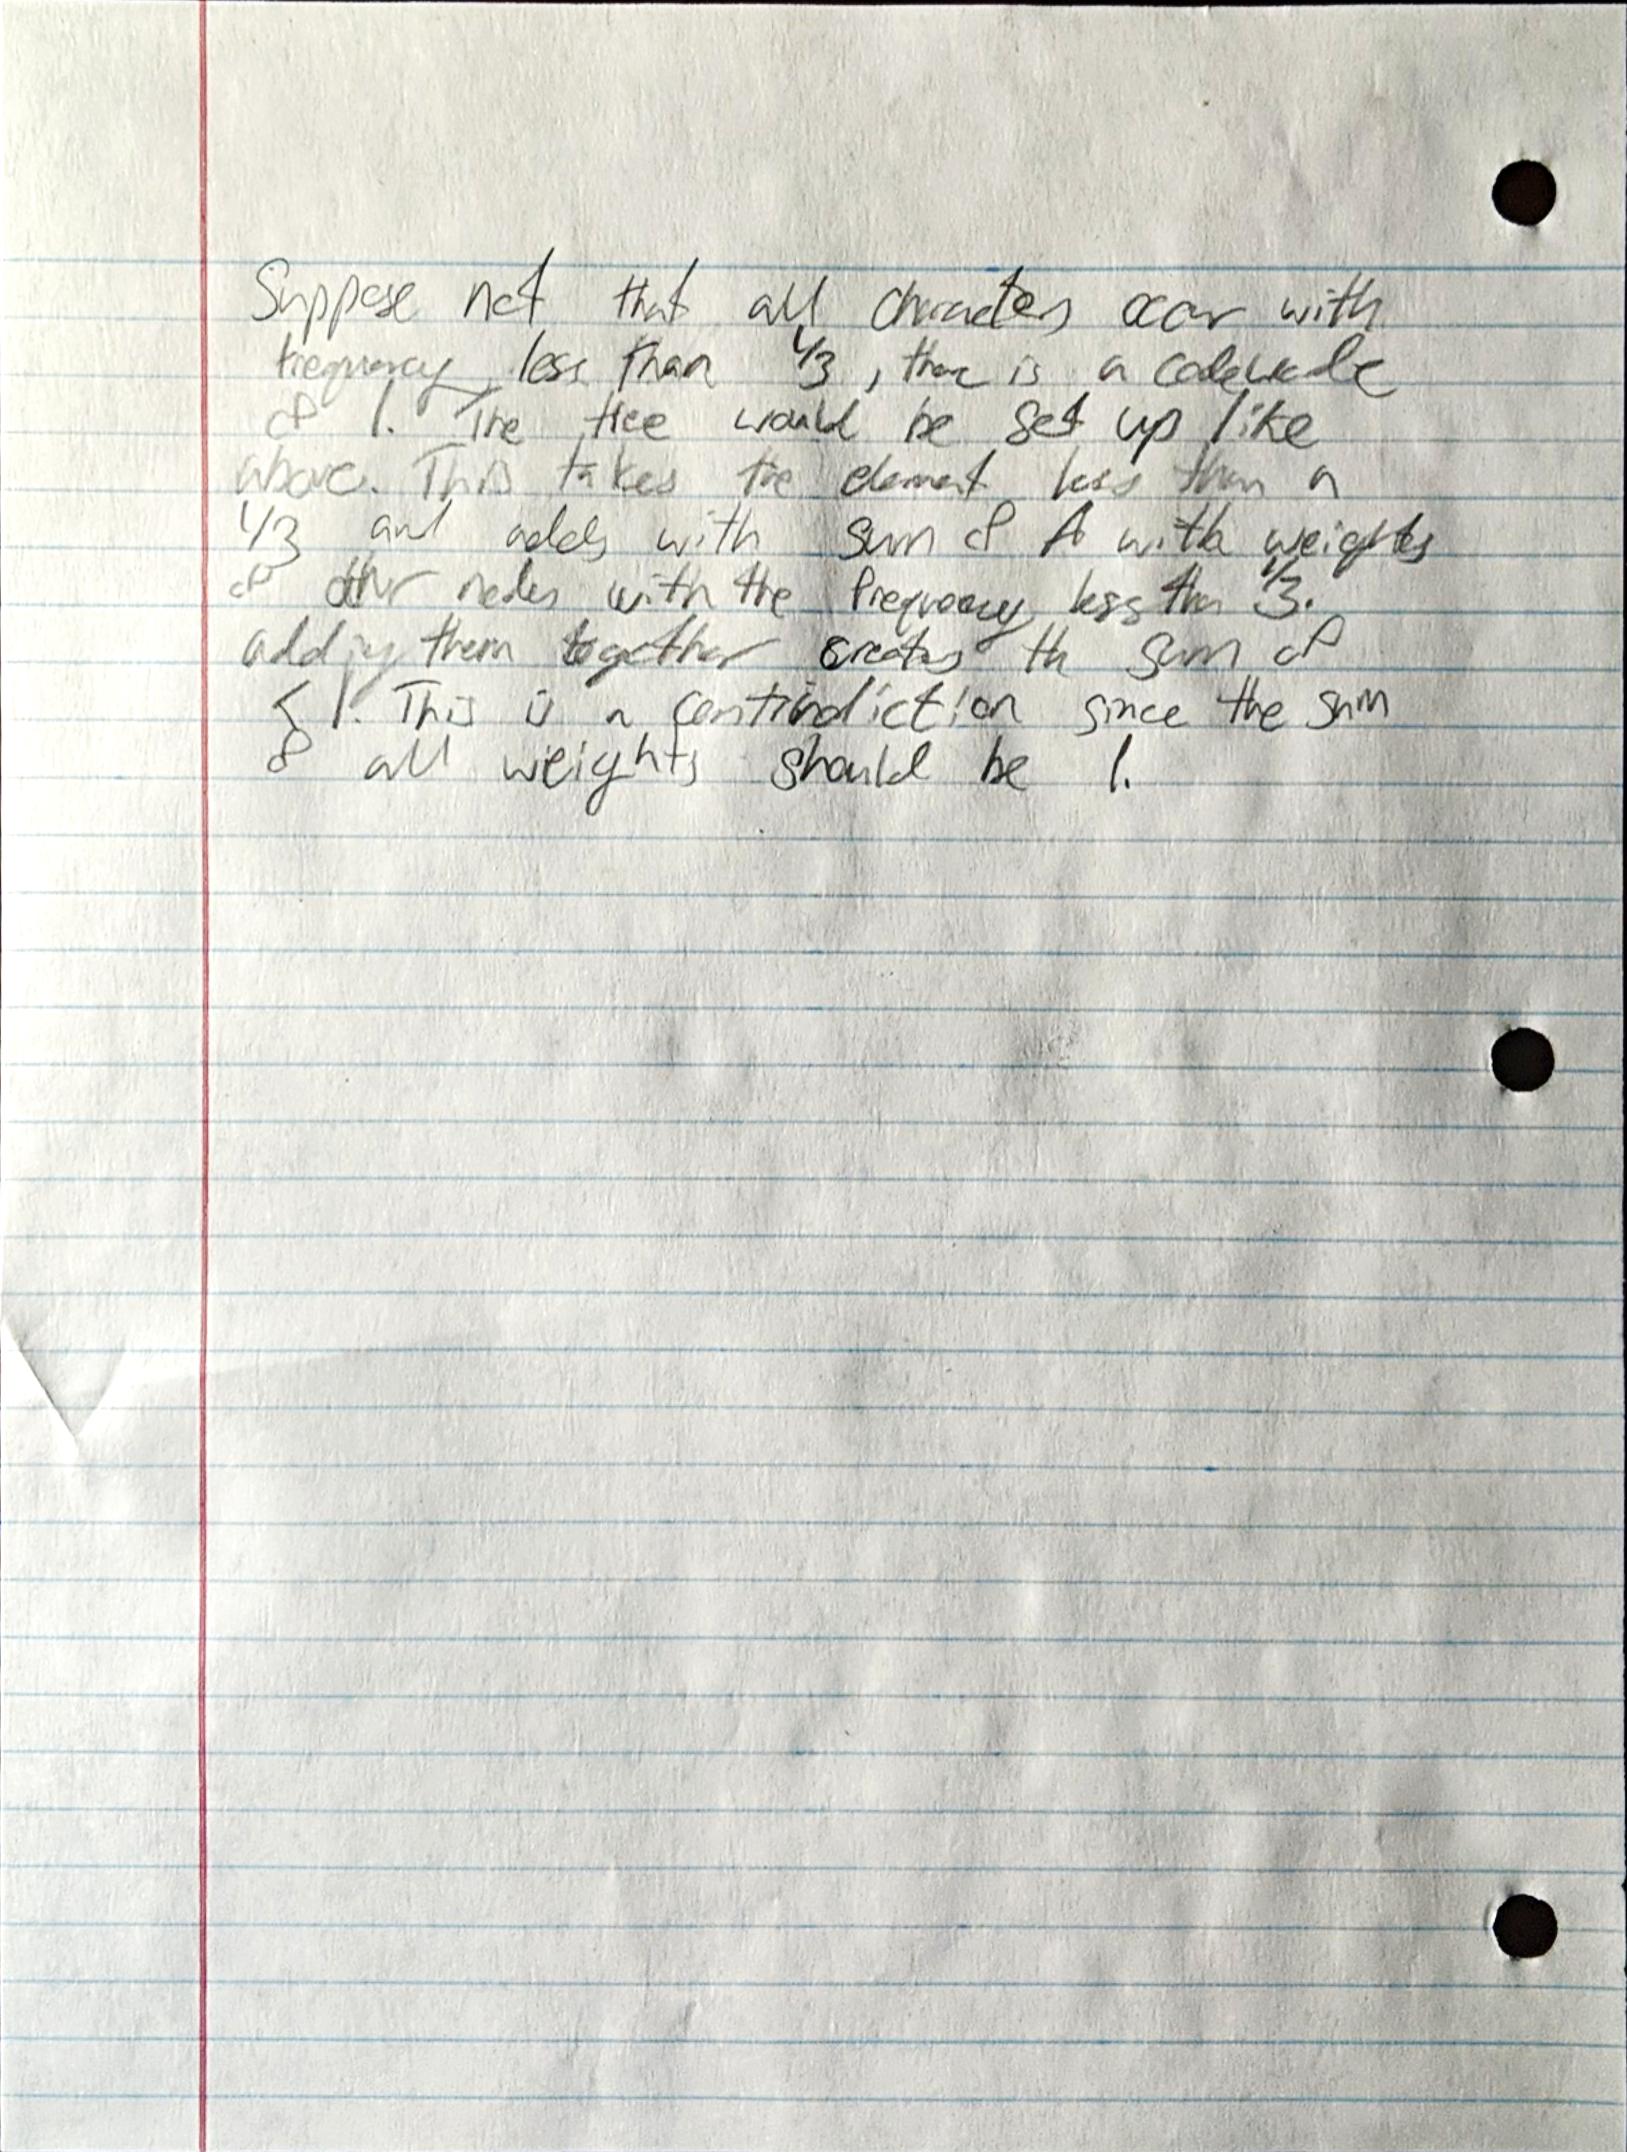 Suppose not that all characters occur with
frequency less than 1/3, there is a codeword
of 1. The tree would be set up like
above. This takes the element less than a
1/3 and adds with sum of A with weights
of other nodes with the frequency less than 1/3.
adding them together creates the sum of
< 1. This is a contindiction since the sum
of all weights should be 1.